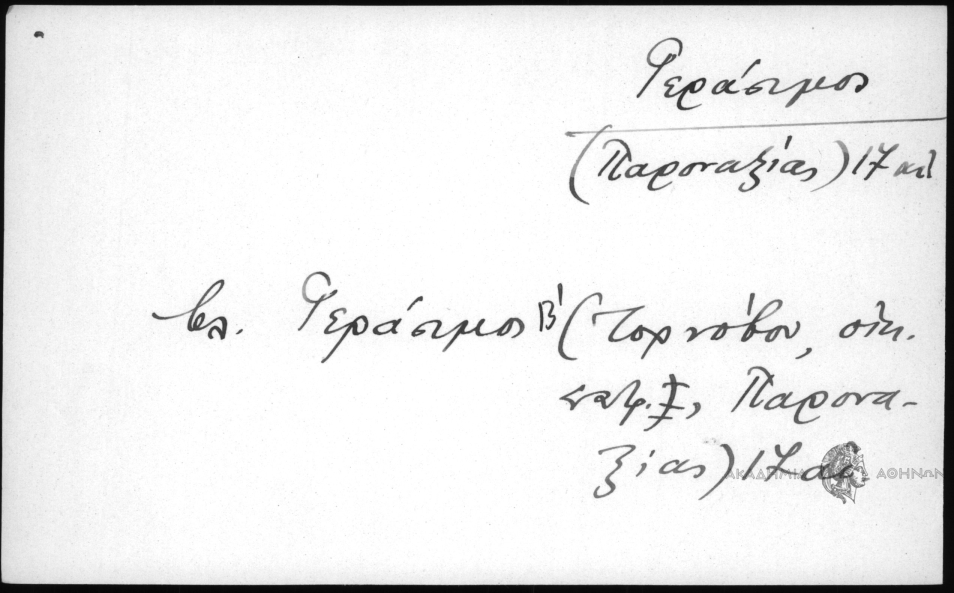 Γεράσιμος
(Παροναξίας) 17 αι
βλ. Γεράσιμος Β' (Τορνόβου, οἰκ.
πατρ. , Παρονα-
ξίας) 17 αι
ΑΚΑΔΗΜΙΑ ΑΘΗΝΩΝ